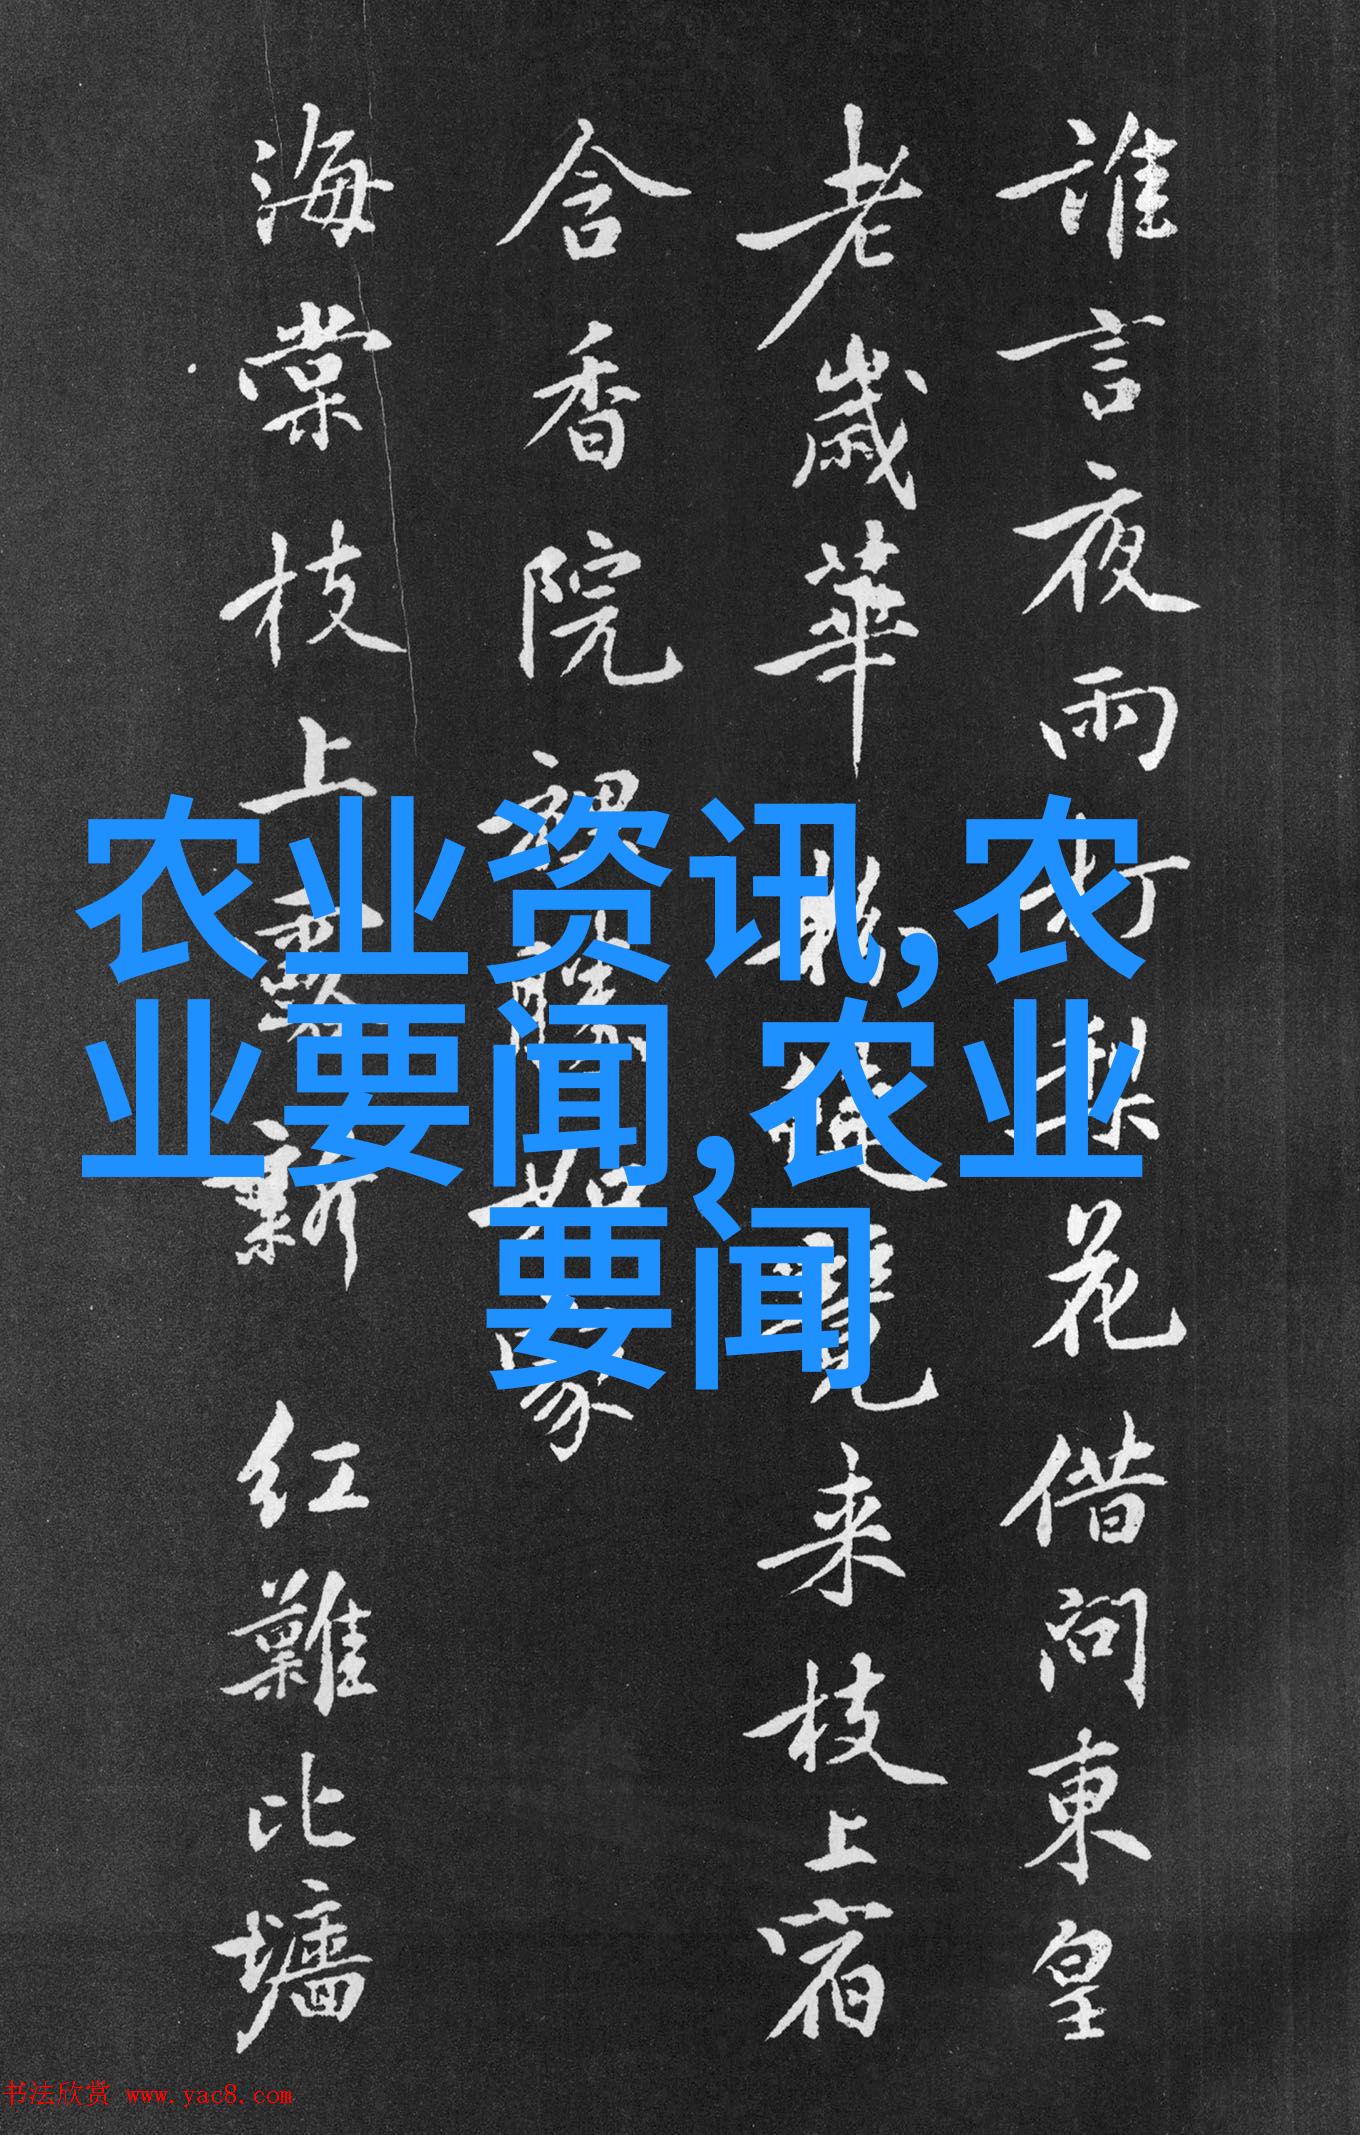 谁言夜雨打梨花借问東皇
老歲華
来枝上宿
含香院
海棠枝上
新红難比墙
农业资讯,农
业要闻,农业
要闻
书法欣赏 www.yac8.com